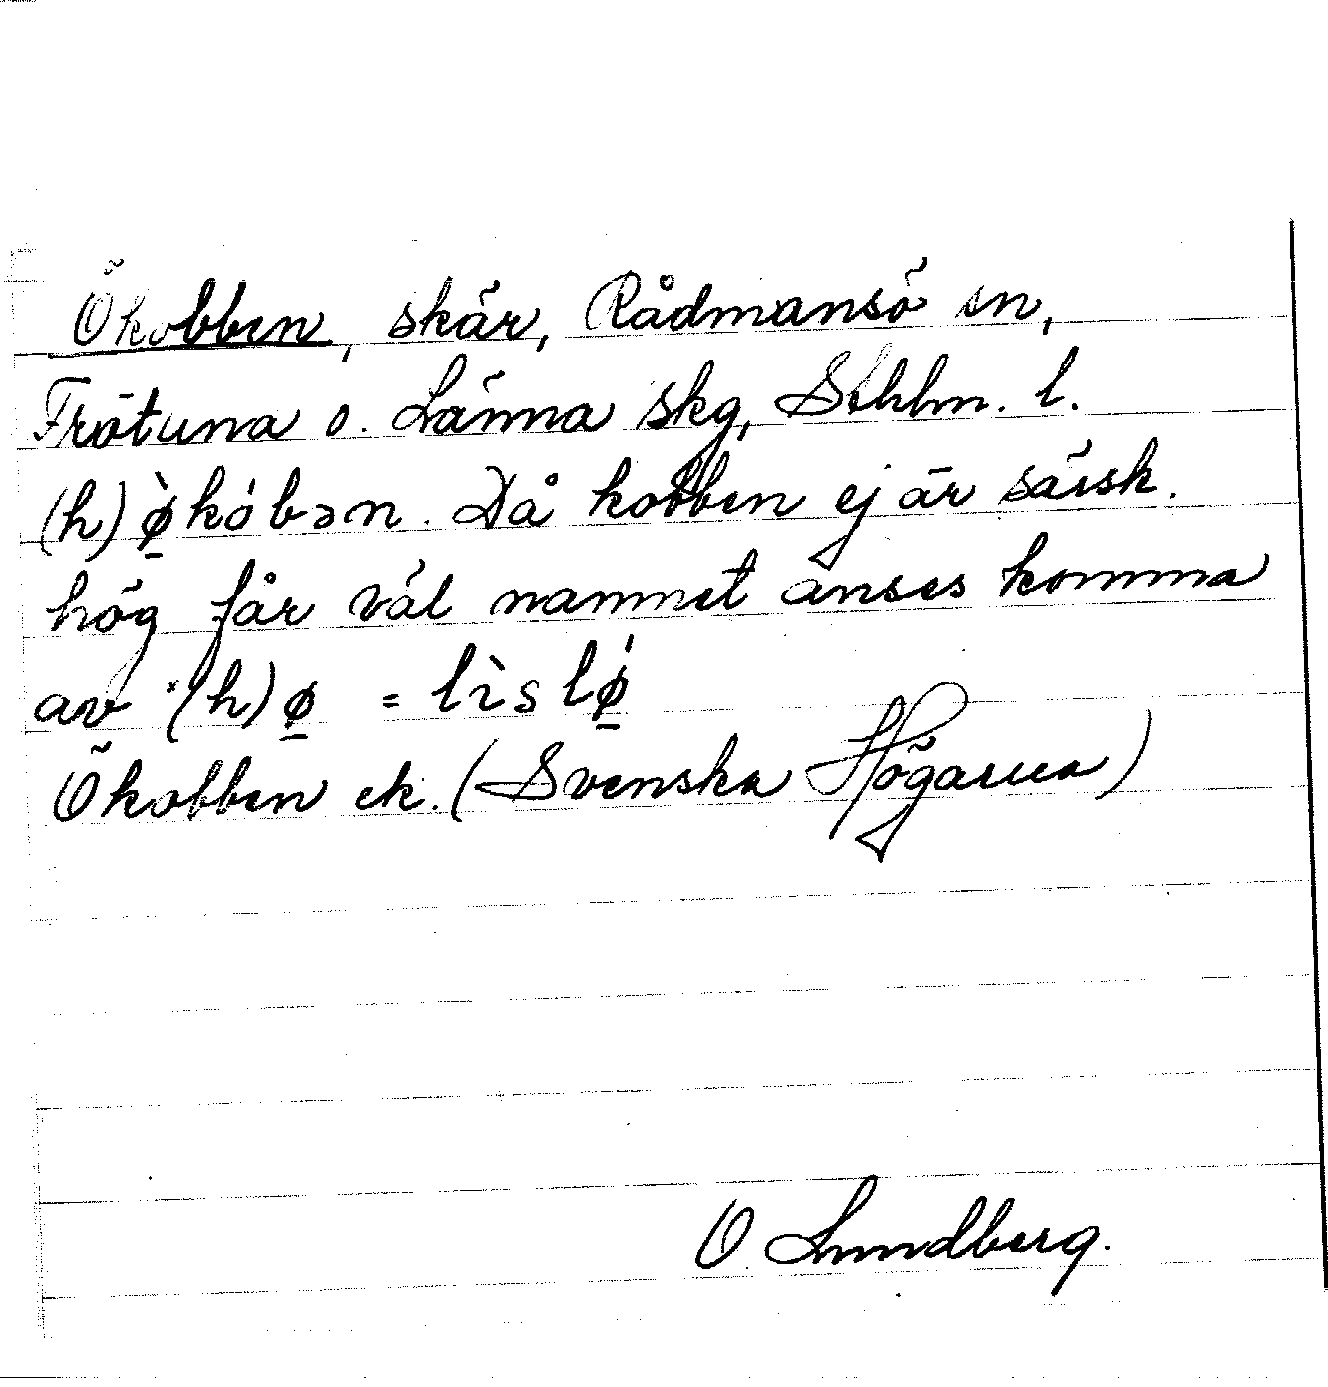 Ökobben, skär, Rådmansö sn,
Frötuna o. Länna skg, Sthlm. l.
(h)ø̱̀kóbən. Då kobben ej är särsk.
hög får väl namnet anses komma
av *(h)ø̱ = lìslǿ̱
Ökobben ek. (Svenska Högarna)
O Lundberg.